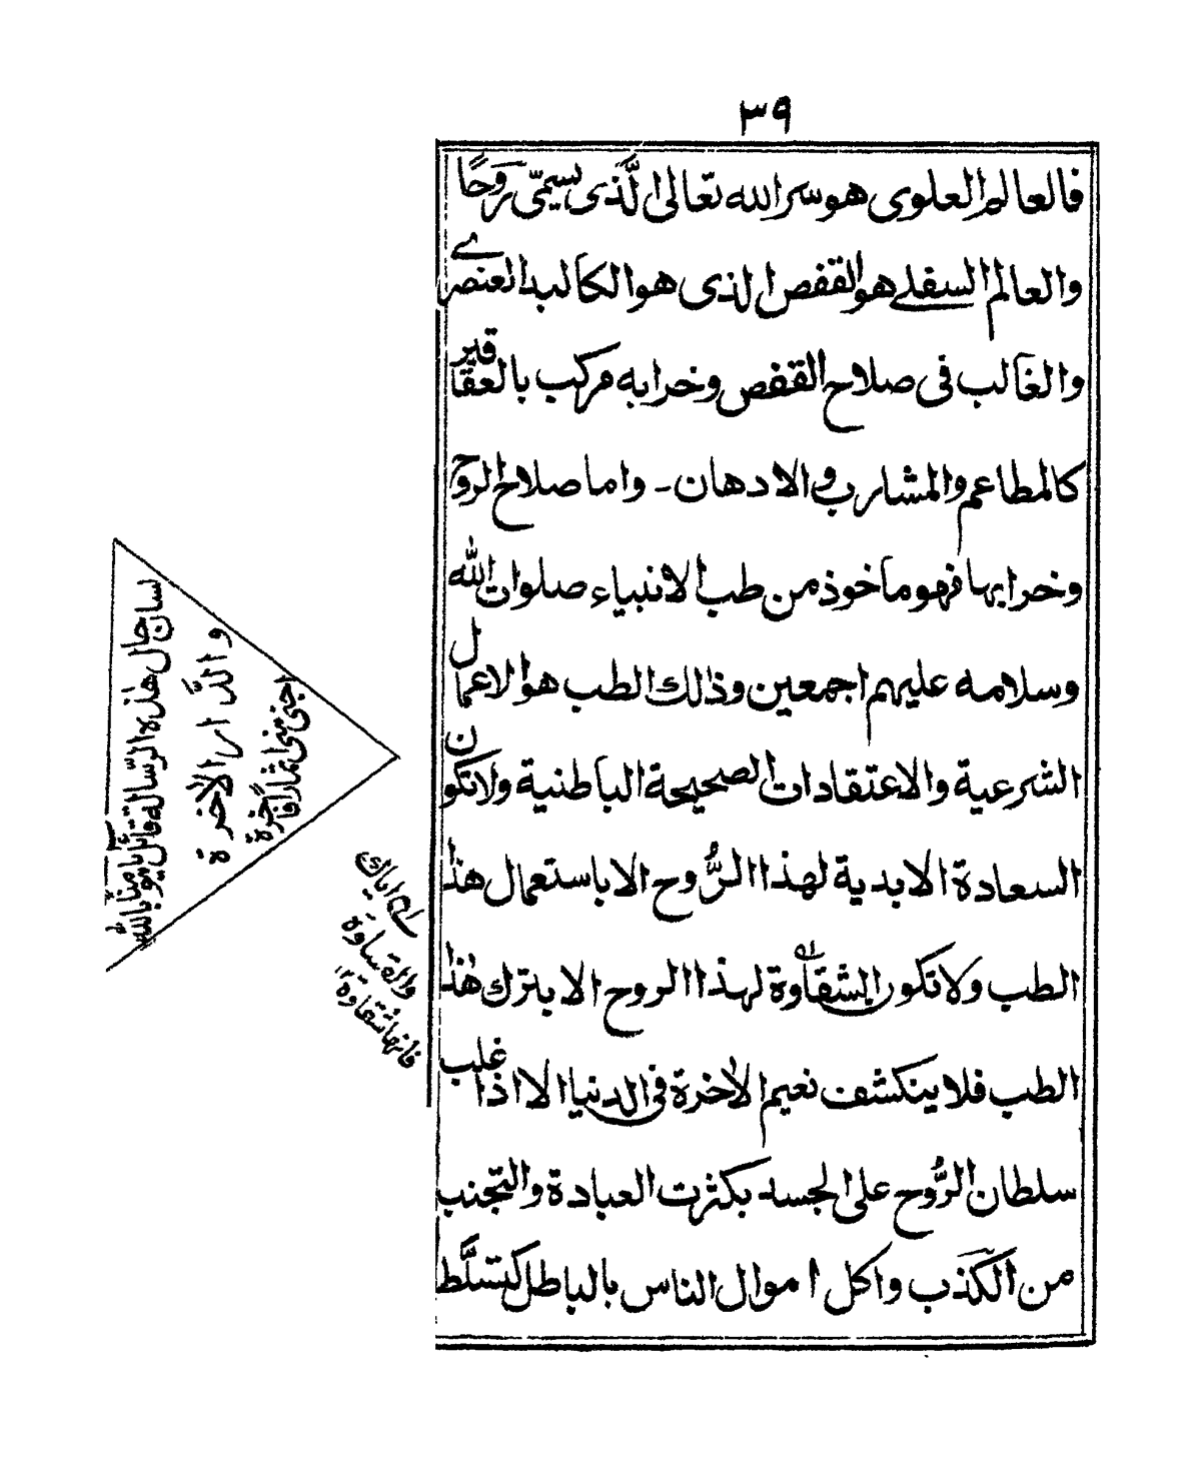 ٣٩
فالعالم العلوى هو سر الله تعالى الَّذى يسمّى رَوحًا
والعالم السفلے هو القفص الذى هو الكالبد العنصرے
والغالب فى صلاح القفص وخرابه مركب بالعقاقير
كالمطاعم والمشارب والادهان - واما صلاح الروح
وخرابها فهو ماخوذ من طب الانبياء صلوات الله
وسلامه عليهم اجمعين وذالك الطب هو الاعمال
الشرعية والاعتقادات الصحيحة الباطنية ولا تكون
السعادة الابدية لهذا الرُّوح الا باستعمال هذا
الطب ولا تكون الشقاوة لهذا الروح الا بترك هٰذا
الطب فلا ينكشف نعيم الاٰخرة فى الدنيا الا اذا غلب
سلطان الرُّوح على الجسد بكثرت العبادة والتجنب
من الكَذب واكل اموال الناس بالباطل كتسلَّط
لسان حال هٰذه الرّسالة قائل يا مؤمنًا بالله
والدَّار الاٰخرة
اجنى منى اثمارًا فاخرة
اياك
والقساوة
فانها شقاوة ١٢